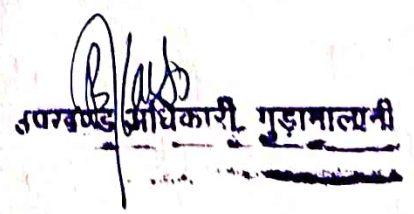 उपखण्ड अधिकारी गुड़ामालानी